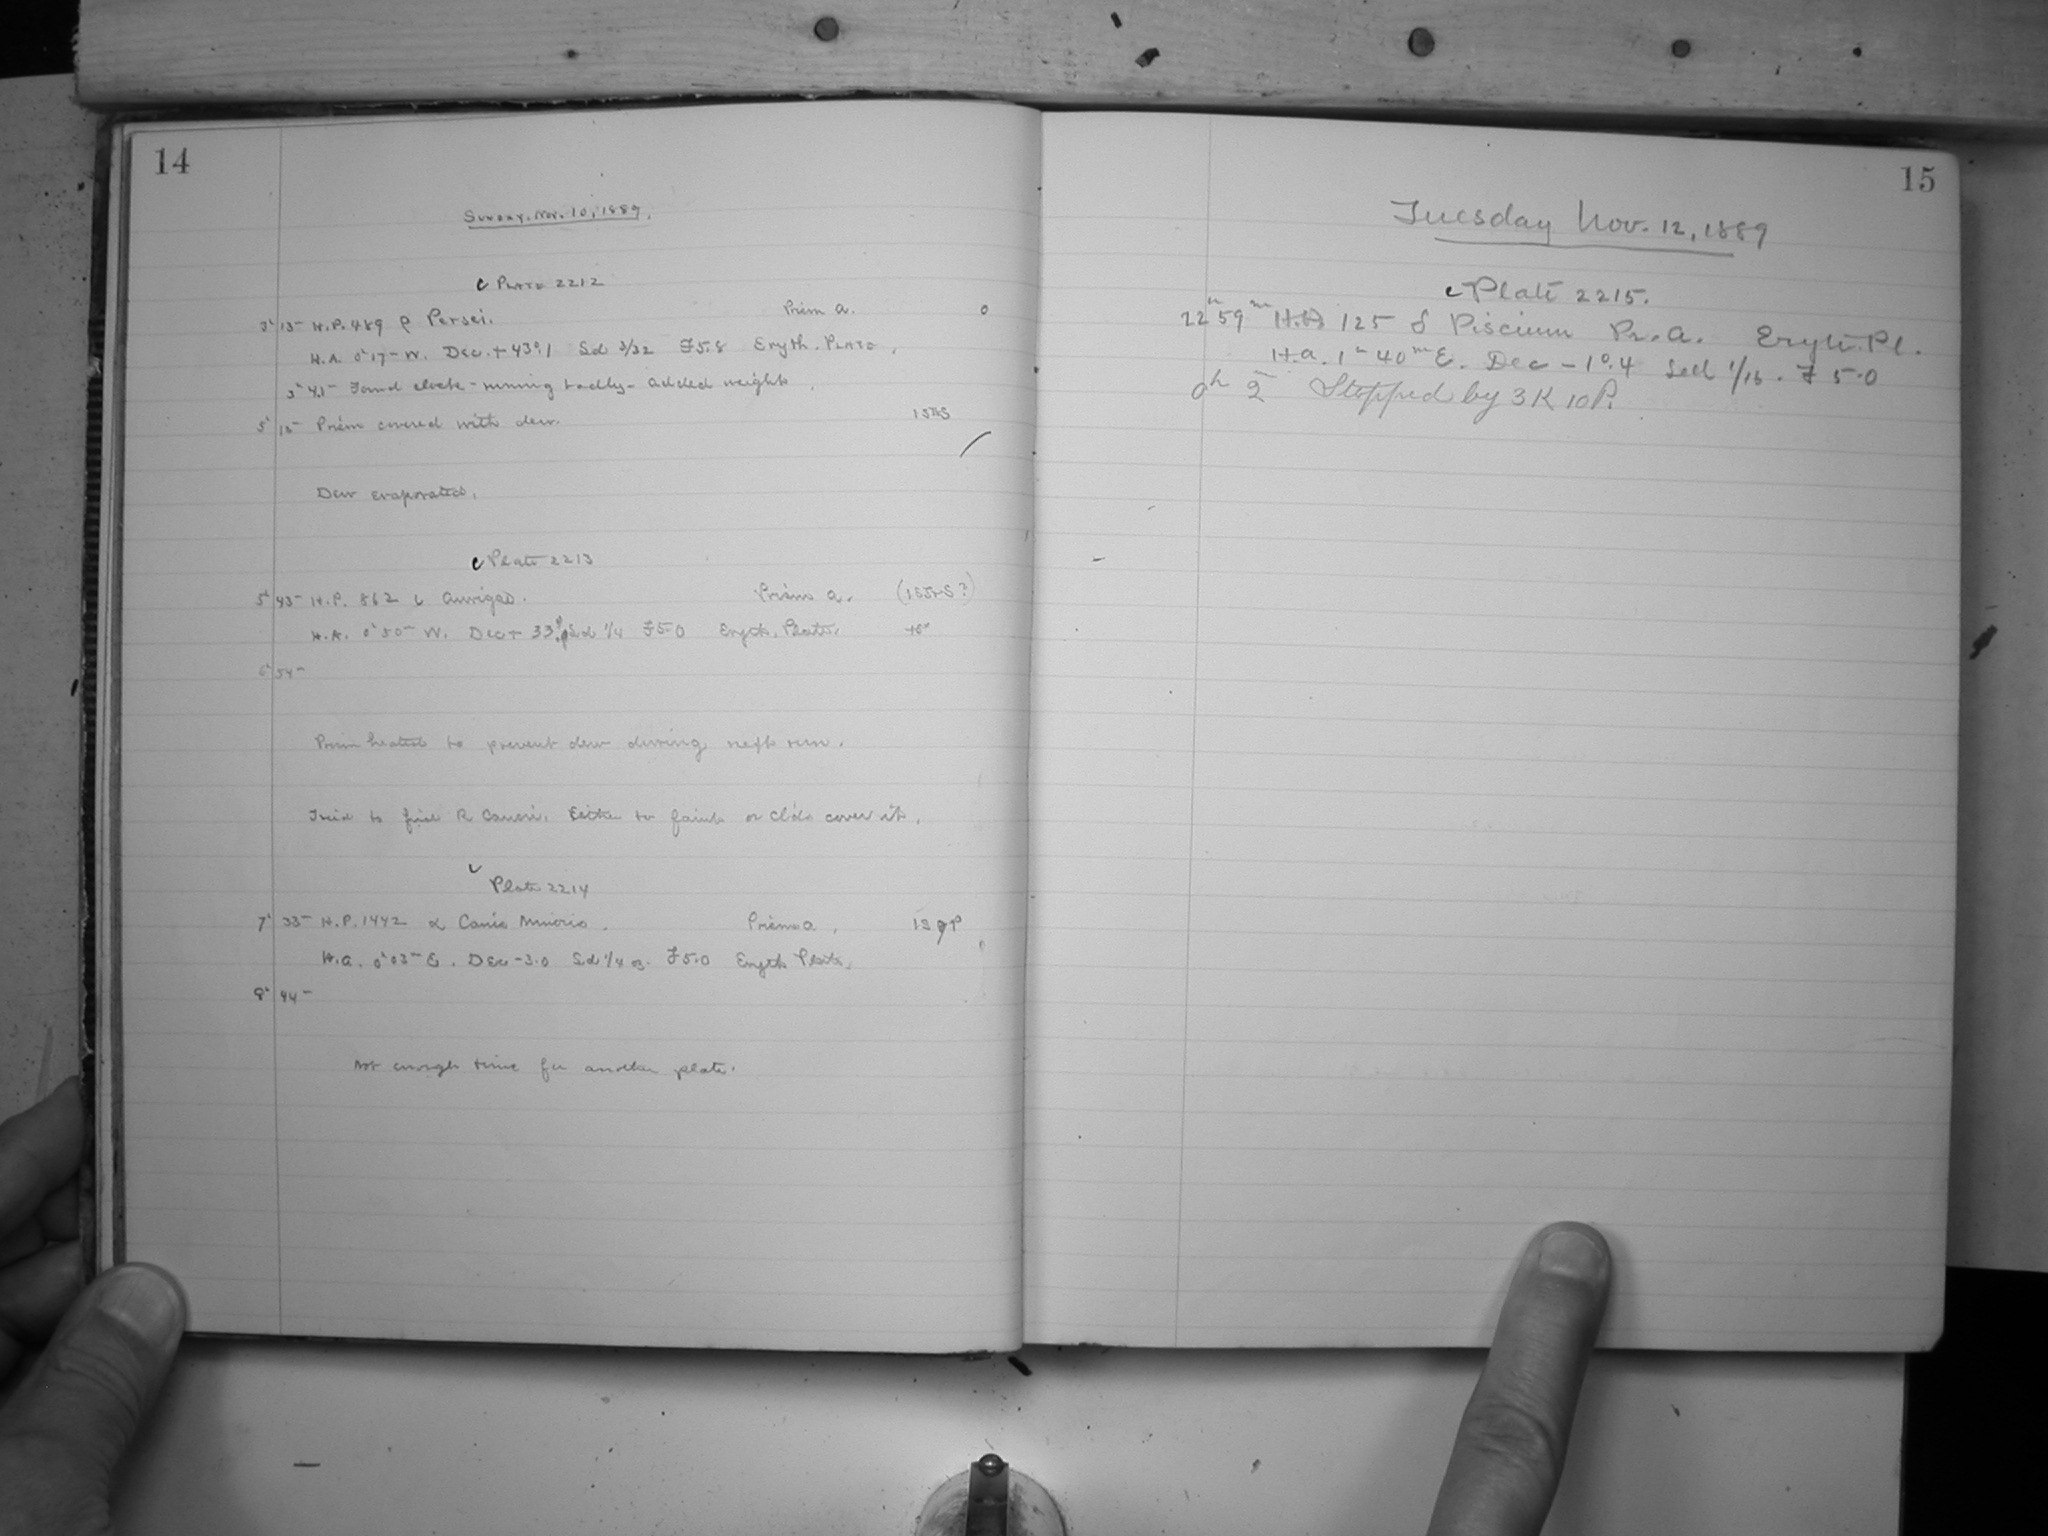 14
Sunday. Nov. 10, 1889.
c PLATE 2212
3h 15m H.P. 489 ρ Persei. Prism a. 0
H.A. 0h 17m W. Dec. + 43°.1 Scd 3/32 F 5.8 Eryth. PLATE.
3h 41m Found clock running badly - added weight.
5h 15m Prism covered with dew.
Dew evaporated.
c Plate 2213
5h 43m H.P. 862 ι Aurigae. Prism a.
H.A. 0h 50m W. Dec + 33° Scd 1/4 F 5.0 Eryth. Plate.
6h 54m
Prism heated to prevent dew during next run.
Tried to find R Cancri. Either too faint or clds cover it.
c Plate 2214
7h 33m H.P. 1442 α Canis Minoris. Prism a.
H.A. 0h 03m E. Dec - 3.0 Scd 1/4 F 5.0 Eryth Plate.
8h 44m
Not enough time for another plate.
15
Tuesday Nov. 12, 1889
c Plate 2215.
22h 59m H.P. 125 δ Piscium Pr. a. Eryth. Pl.
H.a. 1h 40m E. Dec - 1°.4 Scd 1/16. F 5.0
0h 2m Stopped by 3K 10P.